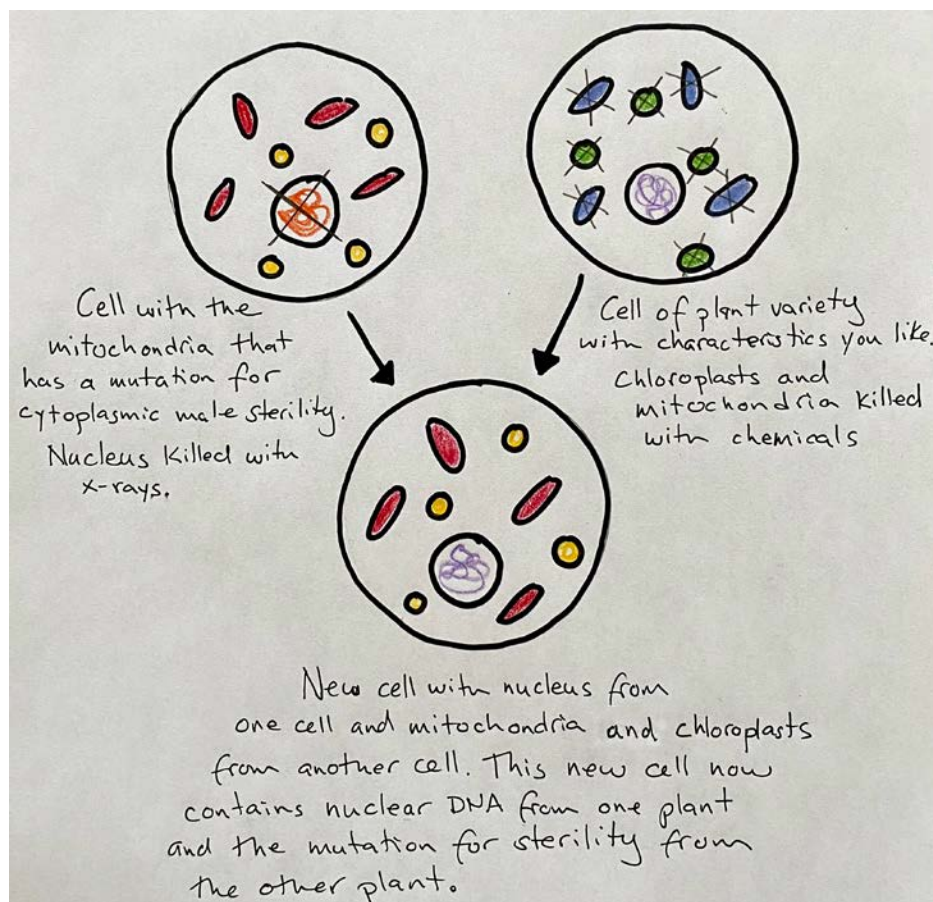 Cell with the
mitochondria that
has a mutation for
cytoplasmic male sterility.
Nucleus killed with
x-rays.
Cell of plant variety
with characteristics you like.
Chloroplasts and
mitochondria killed
with chemicals
New cell with nucleus from
one cell and mitochondria and chloroplasts
from another cell. This new cell now
contains nuclear DNA from one plant
and the mutation for sterility from
the other plant.